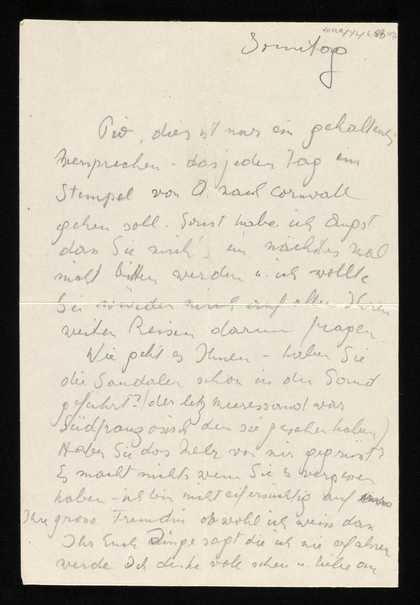 Sonntag
Piv, dies ist nur ein gehaltenes
Versprechen - das jeden Tag ein
Stempel von O. nach Cornwall
gehen soll. Sonst habe ich Angst
dan Sie mich ein nächstes mal
nicht bitten werden u. ich wollte
Sie auf allen Ihren
weiten Reisen darum fragen
Wie geht es Ihnen - haben Sie
die Sandalen schon in den Sand
geführt? (der letz Meeressand war
Südfranzösisch den sie gesehen haben)
Haben Sie das Meer von mir gegrüsst?
Es macht nichts wenn Sie es vergessen
haben - ich bin nicht eifersüchtig auf
Ihre grosse Freundin obwohl ich weiss dan
Ihr Euch Dinge sagt die ich nie erfahren
werde. Ich denke viele schen u. liebe an